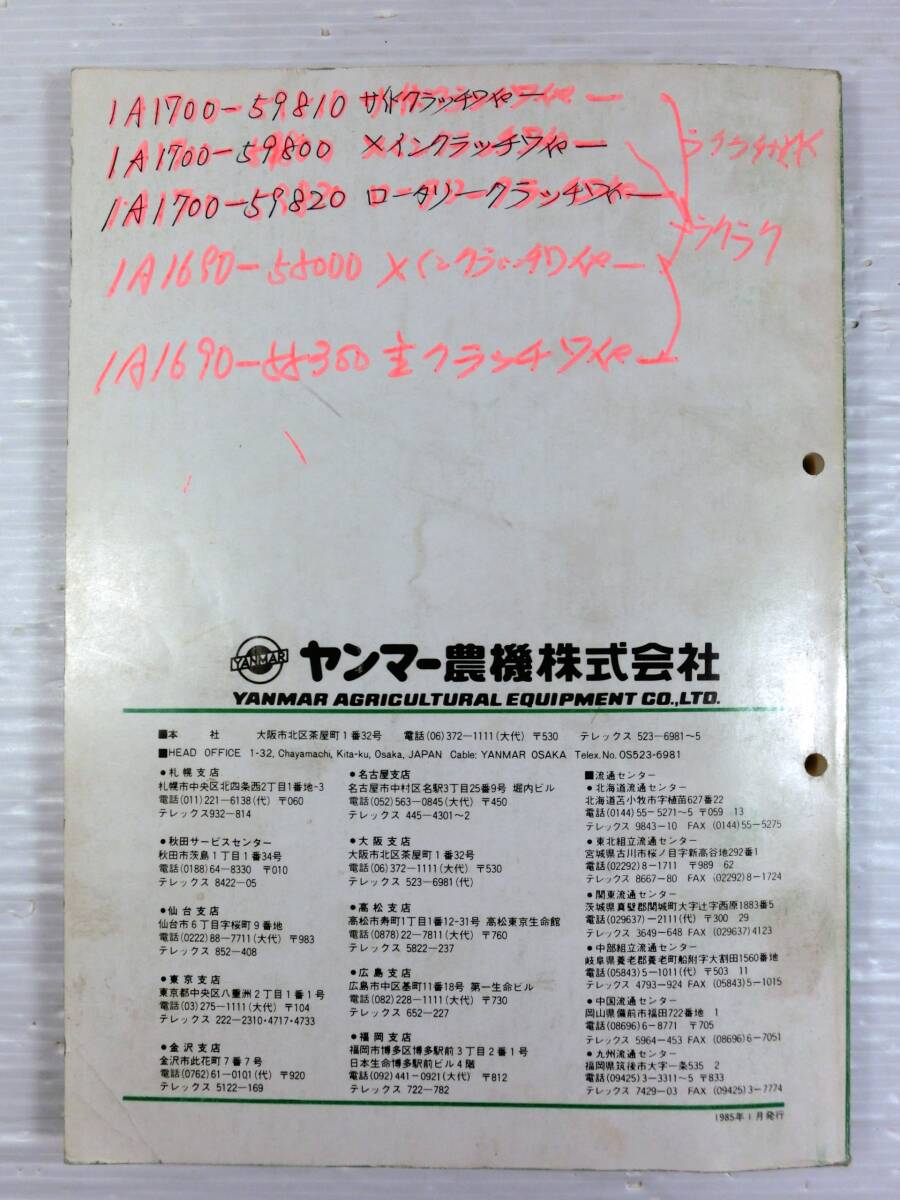 1A1700-59810 サイドクラッチワイヤー
1A1700-59800 メインクラッチワイヤー
1A1700-59820 ロータリークラッチワイヤー
ラクラク
1A1690-55000 メインクラッチワイヤー
1A1690-55300 主クラッチワイヤー
YANMAR
ヤンマー農機株式会社
YANMAR AGRICULTURAL EQUIPMENT CO.,LTD.
■本 社 大阪市北区茶屋町1番32号 電話(06)372-1111(大代) 〒530 テレックス 523-6981~5
■HEAD OFFICE 1-32, Chayamachi, Kita-ku, Osaka, JAPAN Cable: YANMAR OSAKA Telex.No. OS523-6981
●札幌支店
札幌市中央区北四条西2丁目1番地-3
電話(011)221-6138(代) 〒060
テレックス932-814
●秋田サービスセンター
秋田市茨島1丁目1番34号
電話(0188)64-8330 〒010
テレックス 8422-05
●仙台支店
仙台市6丁目字桜町9番地
電話(0222)88-7711(大代) 〒983
テレックス 852-408
●東京支店
東京都中央区八重洲2丁目1番1号
電話(03)275-1111(大代) 〒104
テレックス 222-2310・4717・4733
●金沢支店
金沢市此花町7番7号
電話(0762)61-0101(代) 〒920
テレックス 5122-169
●名古屋支店
名古屋市中村区名駅3丁目25番9号 堀内ビル
電話(052)563-0845(大代) 〒450
テレックス 445-4301~2
●大阪支店
大阪市北区茶屋町1番32号
電話(06)372-1111(大代) 〒530
テレックス 523-6981(代)
●高松支店
高松市寿町1丁目1番12-31号 高松東京生命館
電話(0878)22-7811(大代) 〒760
テレックス 5822-237
●広島支店
広島市中区基町11番18号 第一生命ビル
電話(082)228-1111(大代) 〒730
テレックス 652-227
●福岡支店
福岡市博多区博多駅前3丁目2番1号
日本生命博多駅前ビル4階
電話(092)441-0921(大代) 〒812
テレックス 722-782
■流通センター
●北海道流通センター
北海道苫小牧市字植苗627番22
電話(0144)55-5271~5 〒059 13
テレックス 9843-10 FAX (0144)55-5275
●東北組立流通センター
宮城県古川市桜ノ目字新高谷地292番1
電話(02292)8-1711 〒989 62
テレックス 8667-80 FAX (02292)8-1724
●関東流通センター
茨城県真壁郡関城町大字辻字西原1883番5
電話(029637)-2111(代) 〒300 29
テレックス 3649-648 FAX (029637)4123
●中部組立流通センター
岐阜県養老郡養老町船附字大割田1560番地
電話(05843)5-1011(代) 〒503 11
テレックス 4793-924 FAX (05843)5-1015
●中国流通センター
岡山県備前市福田722番地 1
電話(08696)6-8771 〒705
テレックス 5964-453 FAX (08696)6-7051
●九州流通センター
福岡県筑後市大字一条535 2
電話(09425)3-3311~5 〒833
テレックス 7429-03 FAX (09425)3-7774
1985年1月発行